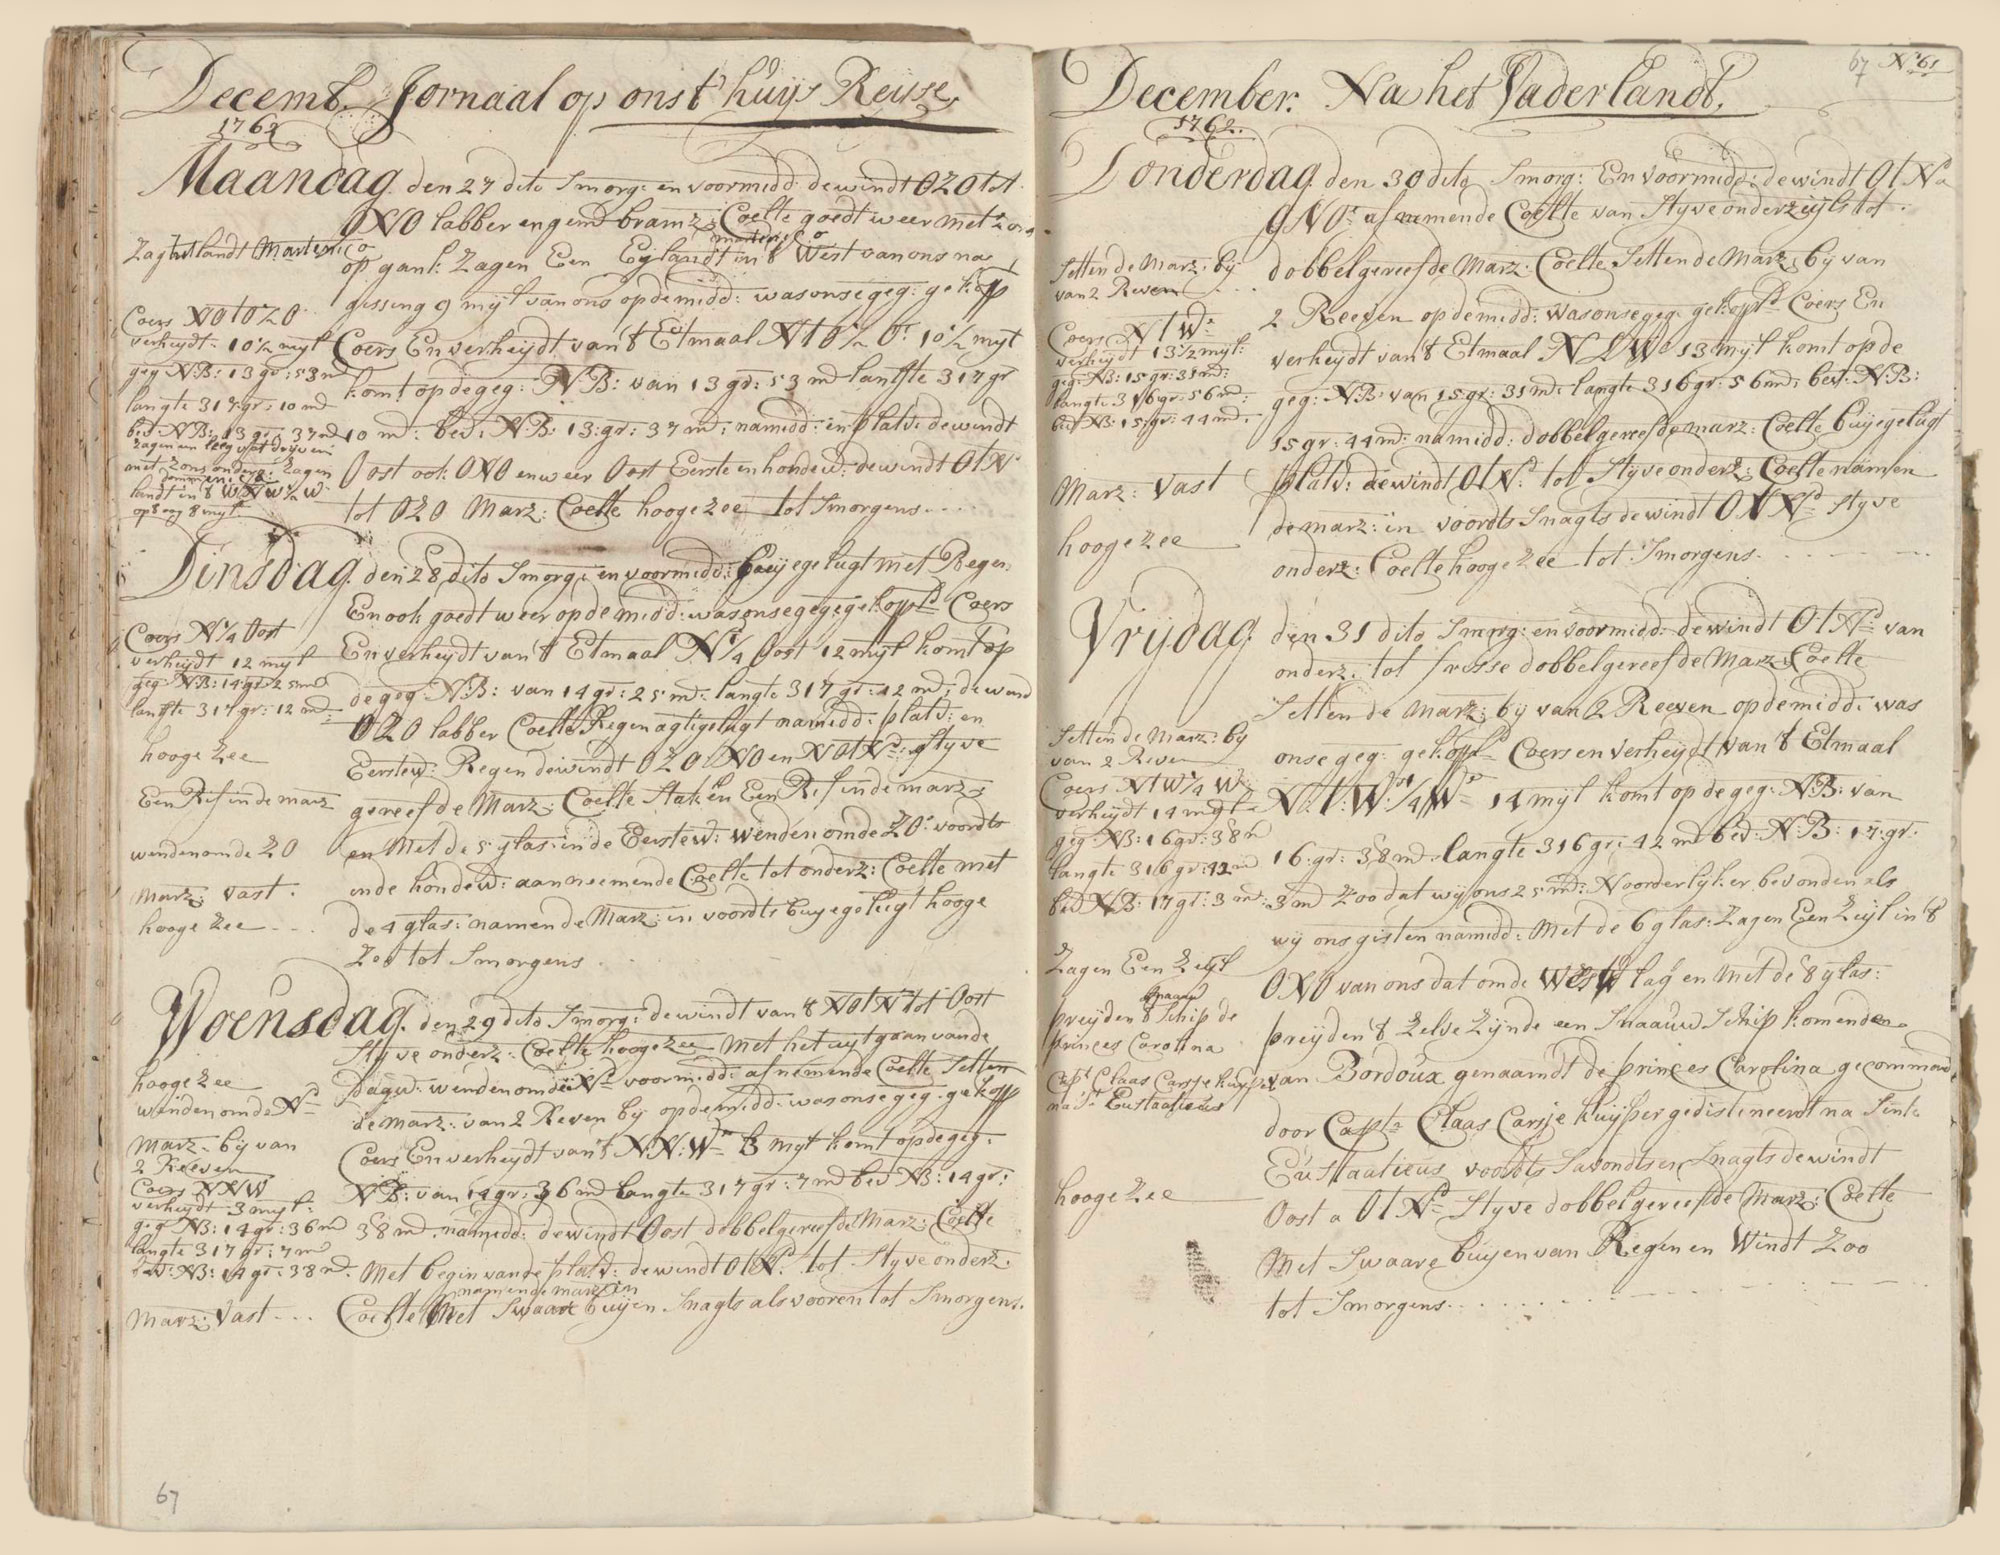 Decemb. Jornaal op onst huys Reijse
1762
Maandag den 27 dito Smorg: en voormidd: de windt OZO tot
ONO labber en gem bramz: Coelte goedt weer met Zons
Zagt landt Martenico
martenico
op gank Zagen Een Eijlandt in 't West van ons na
gissing 9 mijl van ons op de midd: was onse geg: gekopp
Coers NOtO½O
verheijdt 10½ mijl
Coers En verheijdt van 't Etmaal NtO½O 10½ mijl
geg NB: 13 gr: 53 md
komt op de geg: NB: van 13 gd: 53 md langte 317 gr
langte 317 gr: 10 md
bed: NB: 13 gr: 37 md
10 md: bed: NB: 13: gr: 37 md: namidd: in platv: de windt
Zagen een leeg vat drijven
met Zons onderg: Zagen
dominica
landt in 't WNW½W
op 't oog 8 mijl
Oost ook ONO en weer Oost Eerste en hondew: de windt OtN
tot OZO Marz: Coelte hooge zee tot Smorgens
Dinsdag den 28 dito Smorg: en voormidd: buijege lugt met Regen
En ook goedt weer op de midd: was onse geg: gekopp Coers
Coers N¼Oost
En verheijdt van 't Etmaal N¼Oost 12 mijl komt op
verheijdt 12 mijl
geg: NB: 14 gr: 25 md
langte 317 gr: 12 md
de geg NB: van 14 gr: 25 md: langte 317 gr: 12 md: de wind
OZO labber Coelte Regenagtige lugt namidd: platv: en
hooge zee
Eerstew: Regen de windt OZO NO en NOtN: Styve
Een Rif in de marz
gereefde Marz: Coelte Staken Een Rif in de marz
wenden om de ZO
en Met de 5 glas: in de Eerstew: wenden om de ZO voordts
inde hondew: aanneemende Coelte tot onderz: Coelte met
Marz: vast
hooge zee
de 4 glas: namen de Marz: in voordts buijege lugt hooge
Zee tot Smorgens
Woensdag den 29 dito Smorg: de windt van 't NOtN tot Oost
Styve onderz: Coelte hooge zee Met het uijtgaan van de
hooge zee
wenden om de N
dagw: wenden om de N voormidd: afnemende Coelte Setten
de Marz: van 2 Reeven bij op de midd: was onse geg: gekopp
Marz: bij van
2 Reeven
Coers En verheijdt van 't NNW 3 mijl komt op de geg:
Coers NNW
verheijdt 3 mijl:
NB: van 14 gr: 36 md langte 317 gr: 7 md bed NB: 14 gr:
geg NB: 14 gr: 36 md
langte 317 gr: 7 md
38 md. namidd: de windt Oost dobbelgereefde Marz: Coelte
bed: NB: 14 gr: 38 md.
Met begin van de platv: de windt OtN: tot Styve onderz:
namen de marz in
Marz: Vast
Coelte Met Swaare buijen Snagts als vooren tot Smorgens.
67
67 No 61
December. Na het Vaderlandt,
1762.
Donderdag den 30 dito Smorg: En voormidd: de windt OtN a
ONO afnemende Coelte van Styve onderzeijls tot
Setten de Marz: bij
van 2 Reven
dobbelgereefde Marz: Coelte Setten de Marz: bij van
2 Reeven op de midd: was onse geg: gekopp Coers En
Coers NtW
verheijdt 13½ mijl:
verheijdt van 't Etmaal NtW 13 mijl komt op de
geg: NB: 15 gr: 31 md:
langte 316 gr: 56 md:
geg: NB: van 15 gr: 31 md: langte 316 gr: 56 md: bed: NB:
bed NB: 15: gr: 44 md:
15 gr: 44 md: namidd: dobbelgereefde marz: Coelte buijege lugt
Marz: Vast
platv: de windt OtN: tot Styve onderz: Coelte namen
de marz: in voordts Snagts de windt OtN Styve
hooge zee
onderz: Coelte hooge zee tot Smorgens
Vrijdag den 31 dito Smorg: en voormidd: de windt OtN van
onderz: tot frisse dobbelgereefde Marz: Coelte
Setten de Marz: bij van 2 Reeven op de midd: was
Setten de Marz: bij
van 2 Reven
onse geg: gekopp Coers en verheijdt van 't Etmaal
Coers NtW¼W
verheijdt 14 mijl
N:t:W:¼W 14 mijl komt op de geg: NB: van
geg NB: 16 gr: 38 m
16: gr: 38 md. langte 316 gr: 42 md bed: N:B: 17: gr:
langte 316 gr: 42 m
bed NB: 17 gr: 3 md:
3 md zoo dat wij ons 25 md: Noorderlijker bevonden als
wij ons gisten namidd: Met de 6 glas: Zagen Een Zeijl in 't
Zagen Een Zeijl
ONO van ons dat om de West lag en Met de 8 glas:
snaauw
preijden 't Schip de
princes Carolina
preijden 't Zelve Zijnde een Snaauw Schip komende
van Bordoux genaamdt de princes Carolina gecommand
Capt Claas Carsje kuijper
na St Eustaatieus
door Capt Claas Carsje kuijper gedistineerdt na Sint
Eustaatieus voordts Savondts en Snagts de windt
hooge zee
Oost a OtN Styve dobbelgereefde Marz: Coelte
Met Swaare buijen van Regen en Windt Zoo
tot Smorgens